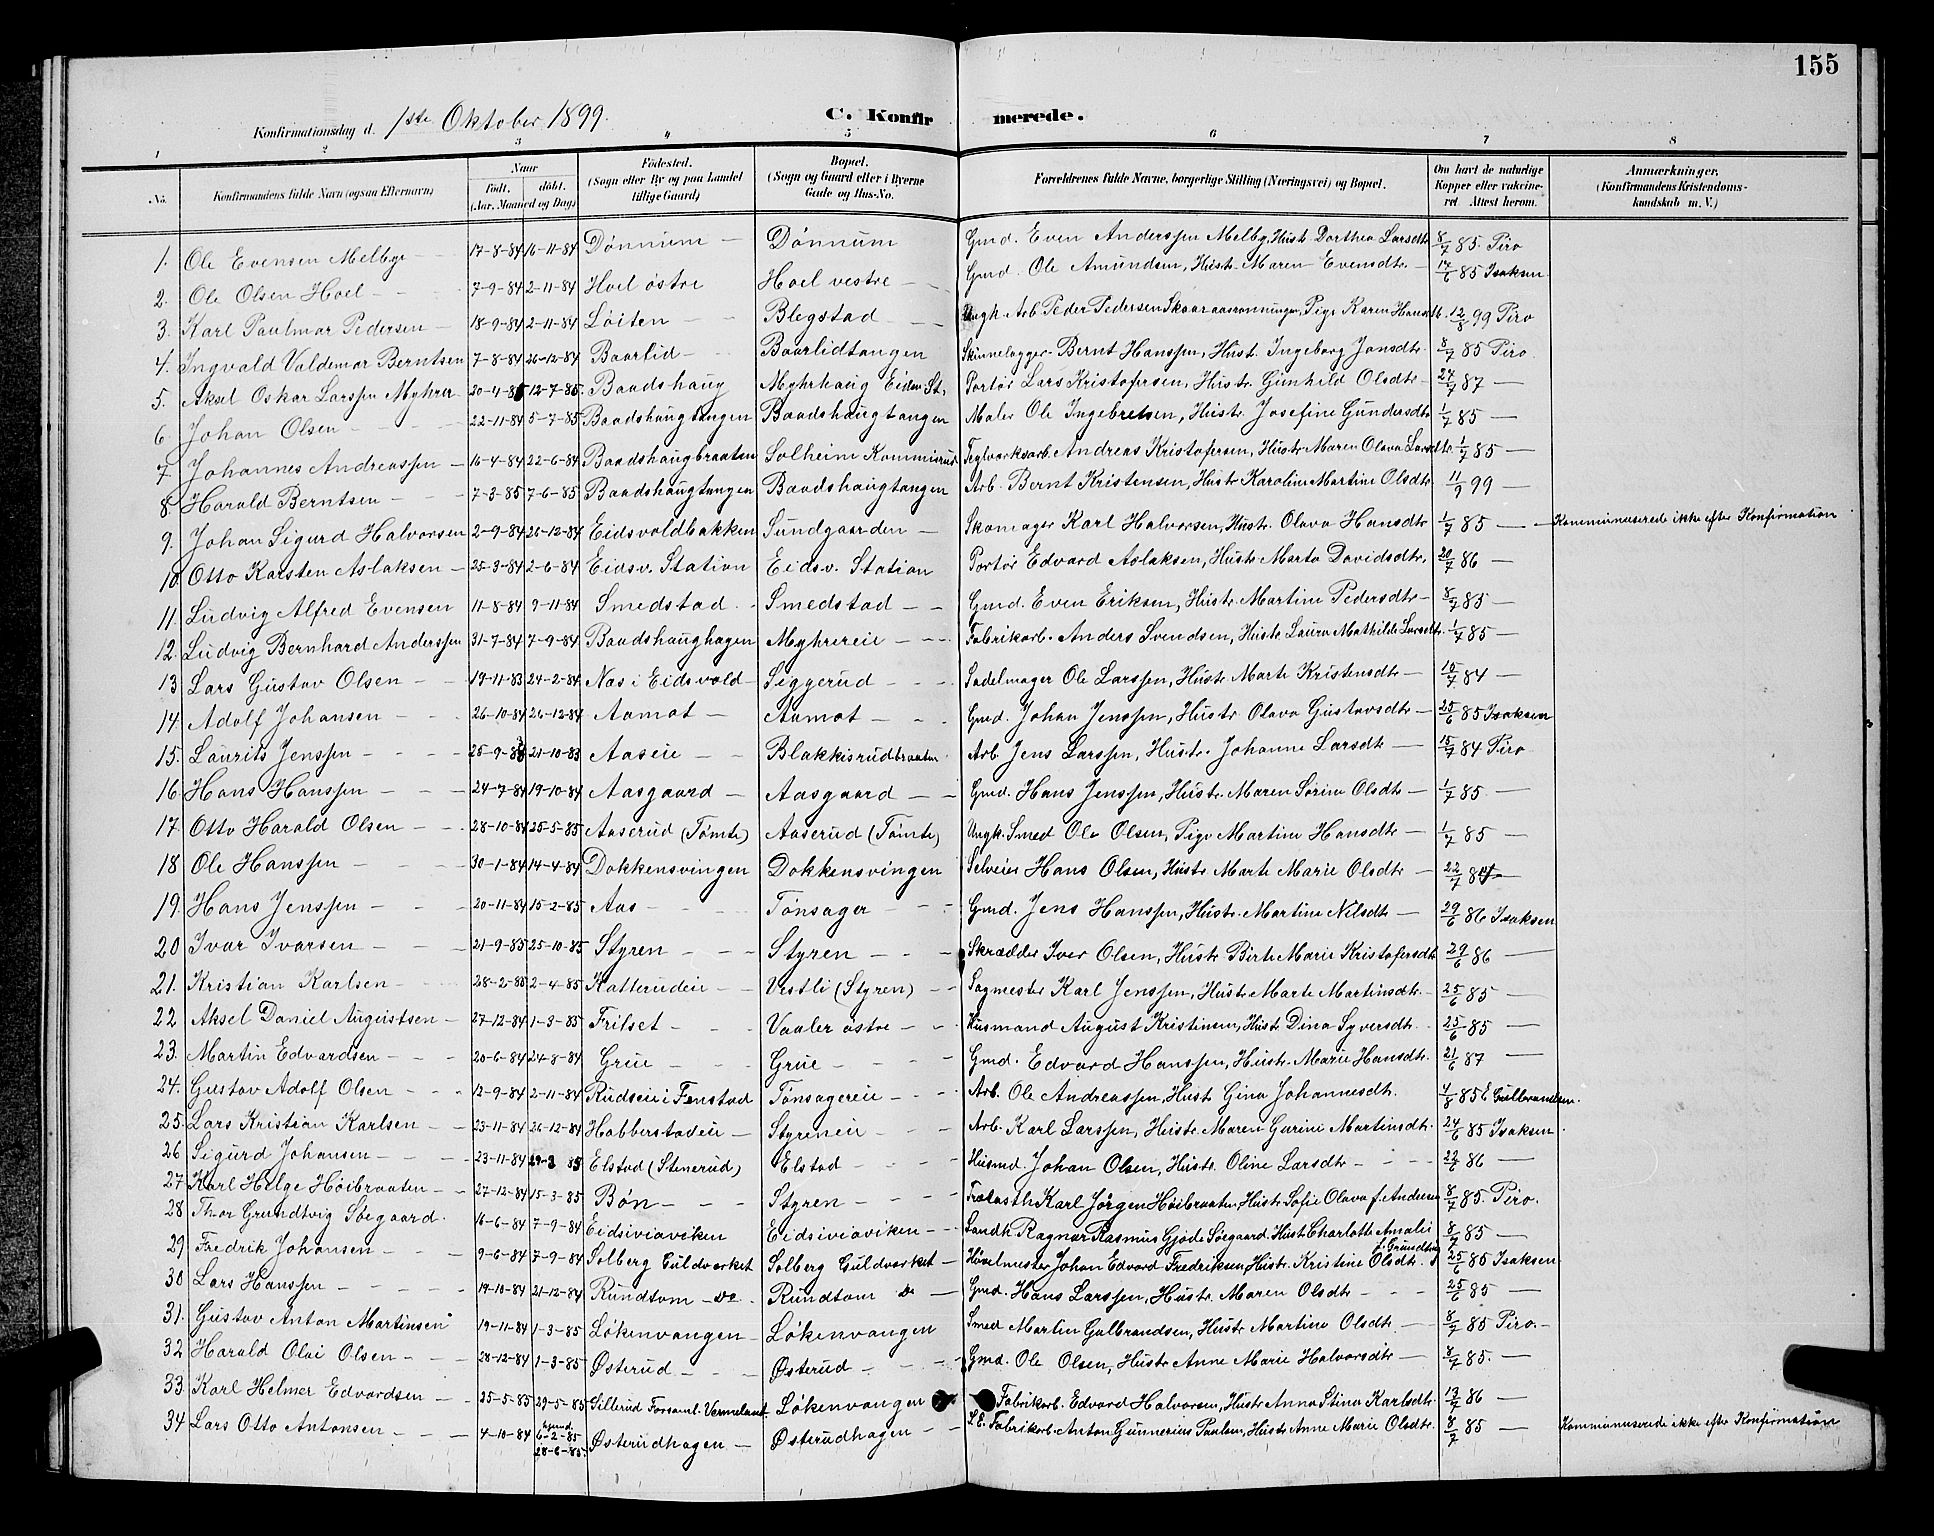 155
Konfirmationsdag d. 1ste Oktober 1899.
C. Konfirmerede.
1 2 3 4 5 6 7 8
No. Konfirmandens fulde Navn (ogsaa Efternavn) Naar født. døbt. (Aar, Maaned og Dag) Fødested. (Sogn eller By og paa Landet tillige Gaard) Bopæl. (Sogn og Gaard eller i Byerne Gade og Hus-No. Forældrenes fulde Navne, borgerlige Stilling (Næringsvei) og Bopæl. Om havt de naturlige Kopper eller vakcineret Attest herom. Anmærkninger. (Konfirmandens Kristendomskundskab m. V.)
1. Ole Evensen Melbye 17-8-84 16-11-84 Dønnum Dønnum Gmd. Even Anderssen Melby, Hustr. Dorthea Larsdtr 8/7 85. Piro
2. Ole Olsen Hoel 7-9-84 2-11-84 Hoel østre Hoel vestre Gmd. Ole Amundsen, Hustr. Maren Evensdtr. 17/6 85 Isaksen
3. Karl Paulmar Pedersen 18-9-84 2-11-84 Løiten Blegstad Ungk. Arb Peder Pedersen Skaaraasmoningen, Pige Karen Hansdtr. 12/8 99 Piro
4. Ingvald Valdemar Berntsen 7-8-84 26-12-84 Baarlid Baarlidtangen Skinnelægger Bernt Hanssen, Hustr. Ingeborg Jonsdtr. 8/7 85 Piro.
5. Aksel Oskar Larssen Myhrer 20-4-85 12-7-85. Baadshaug Myhrhaug Eidsv St. Portør Lars Kristofersen, Hustr. Gunhild Olsdtr 24/7 87 —
6. Johan Olsen 22-11-84 5-7-85 Baadshaugtangen Baadshaugtangen Maler Ole Ingebretsen, Hustr. Josefine Gundersdtr 1/7 85 —
7. Johannes Andreassen 16-4-84 22-6-84 Baadshaugbraaten Solheim Kommisrud Teglværksarb. Andreas Kristofersen, Hustr. Maren Olava Larsdtr. 1/7 85 —
8. Harald Berntsen 7-3-85 7-6-85 Baadshaugtangen Baadshaugtangen Arb. Bernt Kristensen, Hustr Karoline Martine Olsdtr 11/9 99 —
9. Johan Sigurd Halvorsen 2-9-84 26-12-84 Eidsvoldbakken Sundgaarden Skomager Karl Halvorsen, Hustr. Olava Hansdtr 1/7 85 — Kommuniserede ikke efter Konfirmation
10. Otto Karsten Aslaksen 25-3-84 2-6-84 Eidsv. Station Eidsv. Station Portør Edvard Aslaksen, Hustr. Marta Davidsdtr. 20/7 86 —
11. Ludvig Alfred Evensen 11-8-84 9-11-84 Smedstad Smedstad Gmd. Even Eriksen, Hustr. Martine Pedersdtr 8/7 85 —
12. Ludvig Bernhard Anderssen 31-7-84 7-9-84 Baadshaughagen Myhrereie Fabrikarb. Anders Svendsen, Hustr Laura Mathilde Larsdtr. 1/7 85 —
13. Lars Gustav Olsen 19-11-83 24-2-84 Næs i Eidsvold Siggerud Sadelmager Ole Larssen, Hustr. Marte Kristensdtr 10/7 84 —
14. Adolf Johansen 26-10-84 26-12-84 Aamot Aamot Gmd. Johan Jenssen, Hustr Olava Gustavsdtr 25/6 85 Isaksen
15. Laurits Jenssen 25-9-83 21-10-83 Aaseie Blakkisrudbraaten Arb. Jens Larssen, Hustr. Johanne Larsdtr 15/7 84 Piro
16. Hans Hanssen 24-7-84 19-10-84 Aasgaard Aasgaard Gmd. Hans Jenssen, Hustr. Maren Sørine Olsdtr 1/7 85. —
17. Otto Harald Olsen 28-10-84 25-5-85 Aaserud (Tømte) Aaserud (Tømte) Ungk. Smed Ole Olsen, Pige Martine Hansdtr 1/7 85 —
18. Ole Hanssen 30-1-84 14-4-84 Dokkensvingen Dokkensvingen Selveier Hans Olsen, Hustr. Marte Marie Olsdtr 22/7 84 —
19. Hans Jenssen 20-11-84 15-2-85 Aas Tønsager Gmd. Jens Hanssen, Hustr. Martine Nilsdtr 29/6 86 Isaksen
20. Ivar Ivarsen 21-9-85 25-10-85 Styren Styren Skrædder Iver Olsen, Hustr Birte Marie Kristofersdtr 29/6 86 —
21. Kristian Karlsen 28-2-85 2-4-85 Katterudeie Vestli (Styren) Sagmester Karl Jenssen, Hustr. Marte Martinsdtr. 25/6 85 —
22. Aksel Daniel Augustsen 27-12-84 1-3-85 Frilset Vaaler østre Husmand August Kristensen, Hustr Dina Syversdtr. 25/6 85 —
23. Martin Edvardsen 20-6-84 24-8-84 Grue Grue Gmd. Edvard Hanssen, Hustr. Marie Hansdtr. 21/6 87 —
24. Gustav Adolf Olsen 12-9-84 2-11-84 Rudseie i Fenstad Tønsagereie Arb. Ole Andreassen, Hustr Gina Johannesdtr. 4/8 85 E Gulbrandsen.
25. Lars Kristian Karlsen 23-11-84 26-12-84 Habberstadeie Styreneie Arb. Karl Larssen, Hustr. Maren Gurine Martinsdtr. 24/6 85 Isaksen
26. Sigurd Johansen 23-11-84 29-3 85 Elstad (Stenerud) Elstad Husmd. Johan Olsen, Hustr. Oline Larsdtr 22/6 86 —
27. Karl Helge Høibraaten 27-12-84 15-3-85 Bøn Styren Trælasth Karl Jørgen Høibraaten, Hustr Sofie Olava f. Andersen 8/7 85. Piro.
28. Thor Grundtvig Søegaard. 16-6-84 7-9-84 Eidsiviaviken Eidsiviaviken Landh. Ragnar Rasmus Gjøde Søegaard Hustr. Charlotte Amalie f. Grundtvig 8/7 85 —
29. Fredrik Johansen 9-6-84 7-9-84 Solberg Guldverket Solberg Guldverket Høvelmester Johan Edvard Fredriksen, Hustr. Kristine Olsdtr. 25/6 85 Isaksen
30. Lars Hanssen 19-10-84 21-12-84 Rundtom do Rundtom do Gmd. Hans Larssen, Hustr. Maren Olsdtr 25/6 85 —
31. Gustav Anton Martinsen 19-11-84 1-3-85 Løkenvangen Løkenvangen Smed Martin Gulbrandsen, Hustr Martine Olsdtr 8/7 85 Piro.
32. Harald Olai Olsen 28-12-84 1-3-85 Østerud Østerud Gmd. Ole Olsen, Hustr Anne Marie Halvorsdtr 8/7 85. —
33. Karl Helmer Edvardsen 25-5-85 29-5-85 Sillerud Forsaml. Vermeland Løkenvangen Fabrikarb. Edvard Halvorsen, Hustr Anna Stina Karlsdtr. 13/7 86 —
34. Lars Otto Antonsen 4-10-84 hjemd. 6-2-85 28-6-85. Østerudhagen Østerudhagen L.E. Fabrikarb. Anton Gunnerius Paulsen, Hustr Anne Marie Olsdtr. 8/7 85 — Kommuniserede ikke efter Konfirmation